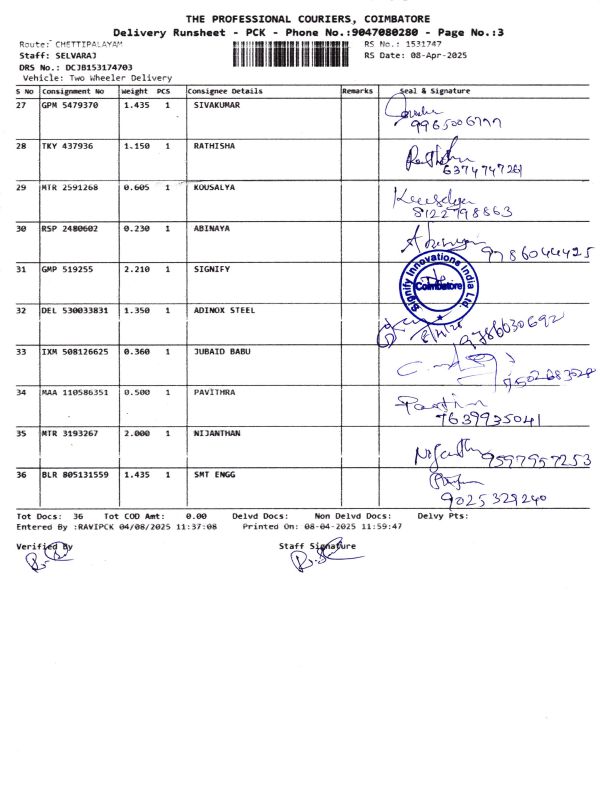 THE PROFESSIONAL COURIERS, COIMBATORE
Delivery Runsheet - PCK - Phone No.:9047080280 - Page No.:3
Route: CHETTIPALAYAM RS No.: 1531747
Staff: SELVARAJ RS Date: 08-Apr-2025
DRS No.: DCJB153174703
Vehicle: Two Wheeler Delivery
S No Consignment No Weight PCS Consignee Details Remarks Seal & Signature
27 GPM 5479370 1.435 1 SIVAKUMAR
9965006777
28 TKY 437936 1.150 1 RATHISHA
6374747261
29 MTR 2591268 0.605 1 KOUSALYA Kousalya
8122798863
30 RSP 2480602 0.230 1 ABINAYA Abinaya
9786044425
31 GMP 519255 2.210 1 SIGNIFY
Signify Innovations India Ltd.
Coimbatore
32 DEL 530033831 1.350 1 ADINOX STEEL
9786030692
33 IXM 508126625 0.360 1 JUBAID BABU
34 MAA 110586351 0.500 1 PAVITHRA
7639935041
35 MTR 3193267 2.000 1 NIJANTHAN
9597957253
36 BLR 805131559 1.435 1 SMT ENGG
9025329240
Tot Docs: 36 Tot COD Amt: 0.00 Delvd Docs: Non Delvd Docs: Delvy Pts:
Entered By :RAVIPCK 04/08/2025 11:37:08 Printed On: 08-04-2025 11:59:47
Verified By Staff Signature